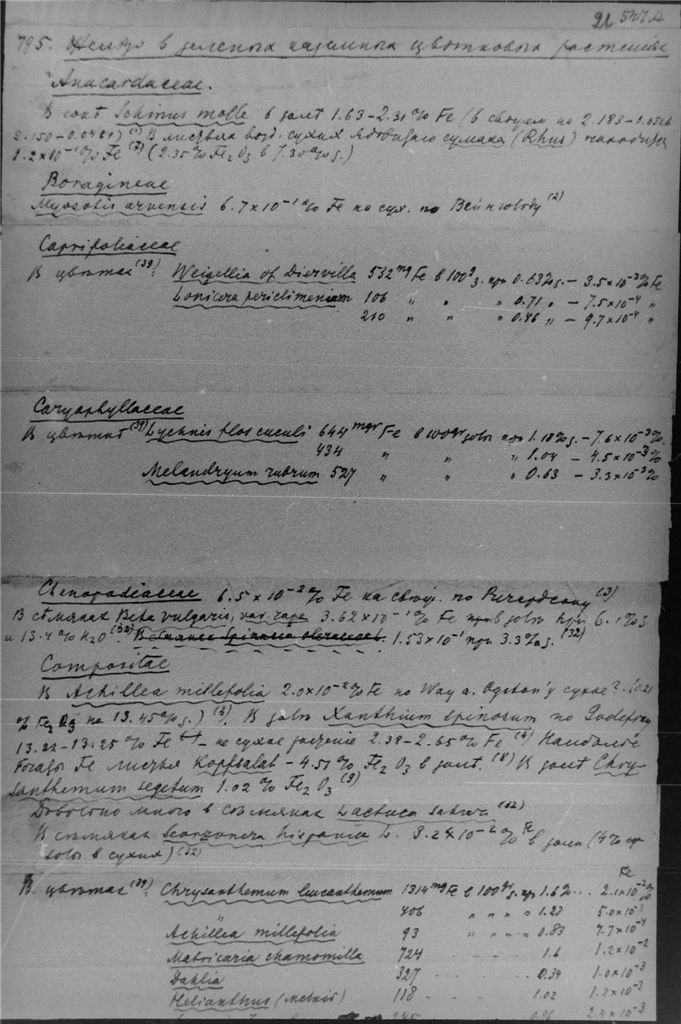 21 547a
795. Железо в зеленых наземных цветковых растениях
Anacardaceae.
В соке Schinus molle, в золе 1.63–2.31% Fe (в свежем на 2.183–
2.150–0.0481) В листьях возд. сухих ядовитого сумаха (Rhus) находится
1.2×10⁻¹% Fe (7) (2.35% Fe₂O₃ в 7.30% з.)
Boragineae
Myosotis arvensis 6.7×10⁻¹% Fe на сух. по (2)
Caprifoliaceae
В цветках (39): Weigellia of Diervilla 532 mg Fe в 100 g з. при 0.63% з. – 3.5×10⁻³% Fe
Lonicera periclimenium 106 „ „ „ 0.71 „ – 7.5×10⁻⁴ „
210 „ „ „ 0.46 „ – 9.7×10⁻⁴ „
Caryophyllaceae
В цветках (39) Lychnis flos cuculi 644 mgr Fe в 100 gr золы при 1.18% з. – 7.6×10⁻³%.
434 „ „ „ 1.04 – 4.5×10⁻³%
Melandryum rubrum 527 „ „ „ 0.63 – 3.3×10⁻³%
Chenopodiaceae 6.5×10⁻²% Fe на свеж. по (3)
В семянах Beta vulgaris, var. rapa 3.62×10⁻¹% Fe при 6.1% з.
и 13.4% H₂O (32). В семянах Spinacia oleraceae. 1.53×10⁻¹ при 3.3% з. (32)
Compositae
В Achillea millefolia 2.0×10⁻²% Fe по Way a. Ogston'у сухое?
% Fe₂O₃ на 13.45% з.) (3). В золе Xanthium spinorum по Godefroy
13.22–13.25% Fe – на сухое растение 2.38–2.65% Fe (4) Наиболее
богаты Fe листья Kopfsalat – 4.51% Fe₂O₃ в золе. (8) В золе Chry-
santhemum segetum 1.02% Fe₂O₃ (9)
Довольно много в семянах Lactuca sativa (32)
В семянах Scorzonera hispanica L. 3.28×10⁻²% Fe в золе (4%
золы в сухих) (32)
Fe
В цветках (39): Chrysanthemum leucanthemum 1314 mg Fe в 100 g з. при 1.6% ... 2.1×10⁻²%
406 „ „ „ „ 1.23 5.0×10⁻³
Achillea millefolia 93 „ „ „ 0.83 7.7×10⁻⁴
Matricaria chamomilla 724 1.6 1.2×10⁻²
Dahlia 327 0.34 1.0×10⁻³
Helianthus 118 1.02 1.2×10⁻³
245 0.96 2.4×10⁻³